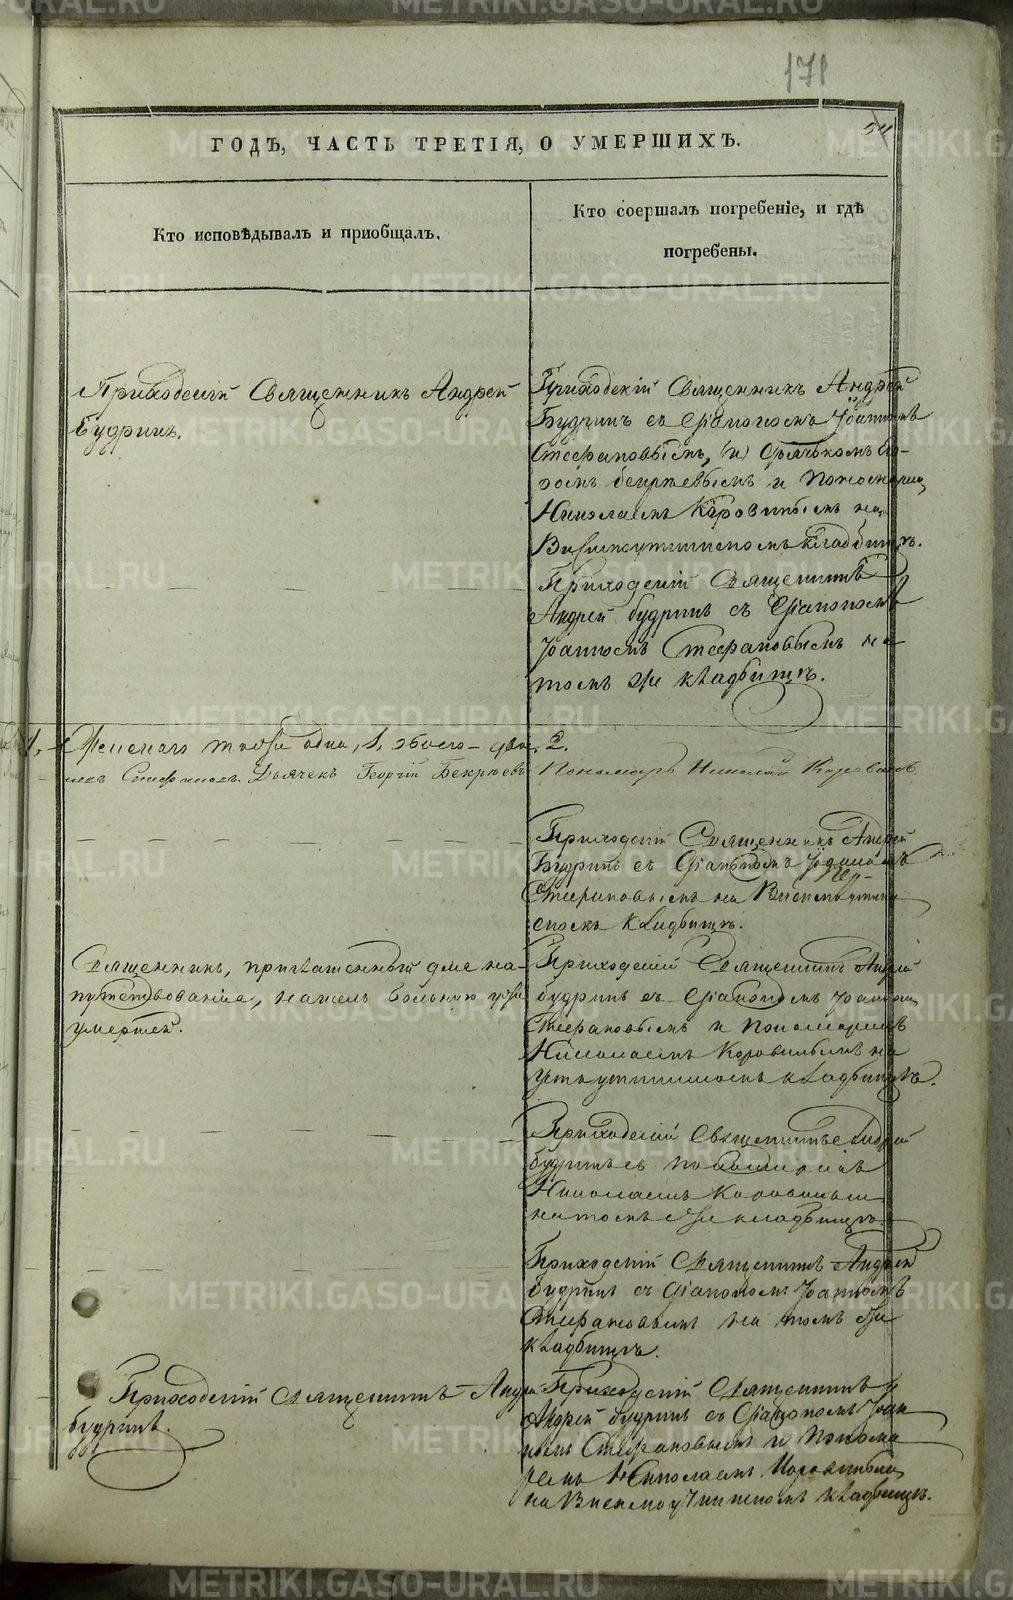 171
54
ГОДЪ, ЧАСТЬ ТРЕТІЯ, О УМЕРШИХЪ.
Кто исповѣдывалъ и приобщалъ.
Кто соершалъ погребеніе, и гдѣ
погребены.
Приходскій Священникъ Андрей
Будринъ.
Приходскій Священникъ Андрей
Будринъ съ Діакономъ Іоанномъ
Стефановымъ, и дьячкомъ
и Пономаремъ
Николаемъ Коровинымъ на
кладбищѣ.
Приходскій Священникъ
Андрей Будринъ съ Діакономъ
Іоанномъ Стефановымъ на
томъ же кладбищѣ.
1, Женскаго пола одна, 1, обоего – два, 2.
Дьячекъ Георгій Бекряевъ Пономарь Николай Коровинъ
Приходскій Священникъ Андрей
Будринъ съ Діакономъ Іоанномъ
Стефановымъ на
кладбищѣ.
Священникъ, приглашенный для на-
путствованія, нашелъ больную уже
умершей.
Приходскій Священникъ Андрей
Будринъ съ Діакономъ Іоанномъ
Стефановымъ и Пономаремъ
Николаемъ Коровинымъ на
Устьуткинскомъ кладбищѣ.
Приходскій Священникъ Андрей
Будринъ съ Пономаремъ
Николаемъ Коровинымъ
на томъ же кладбищѣ.
Приходскій Священникъ Андрей
Будринъ съ Діакономъ Іоанномъ
Стефановымъ на томъ же
кладбищѣ.
Приходскій Священникъ Андрей
Будринъ.
Приходскій Священникъ
Андрей Будринъ съ Діакономъ Іоан
номъ Стефановымъ и Понома
ремъ Николаемъ Коровинымъ
на кладбищѣ.
METRIKI.GASO-URAL.RU